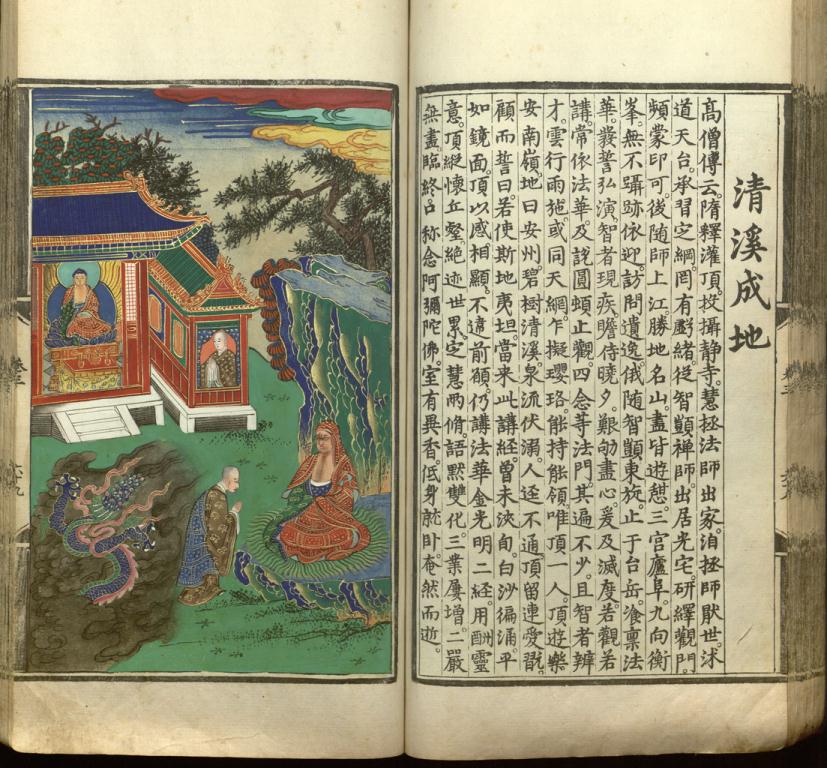 清溪成地
高僧傳云。隋釋灌頂。投攝靜寺。慧拯法師出家。洎拯師厭世。沭
道天台。承習定綱。罔有虧緒。從智顗禪師。出居光宅。研繹觀門。
頻蒙印可。後隨師上江。勝地名山。盡皆遊憩。三宮廬阜。九向衡
峯。無不躡跡依迎。訪問遺逸。俄隨智顗東旋。止于台岳。飡稟法
華。發誓弘演。智者現疾。瞻侍曉夕。艱劬盡心。爰及滅度。若觀若
講。常依法華。及說圓頓止觀。四念等法門。其遍不少。且智者辯
才。雲行雨施。或同天綱。乍擬瓔珞。能持能領。唯頂一人。頂遊樂
安南嶺。地曰安州。碧樹清溪。泉流伏溺。人逕不通。頂留連愛翫。
顧而誓曰。若使斯地夷坦。當來此講經。曾未浹旬。白沙徧涌。平
如鏡面。頂以感相顯。不違前願。仍講法華金光明二經。用酬靈
意。頂縱懷丘壑。絕迹世累。定慧兩脩。語默雙化。三業屢增。二嚴
無盡。臨終。口稱念阿彌陀佛。室有異香。低身就卧。奄然而逝。